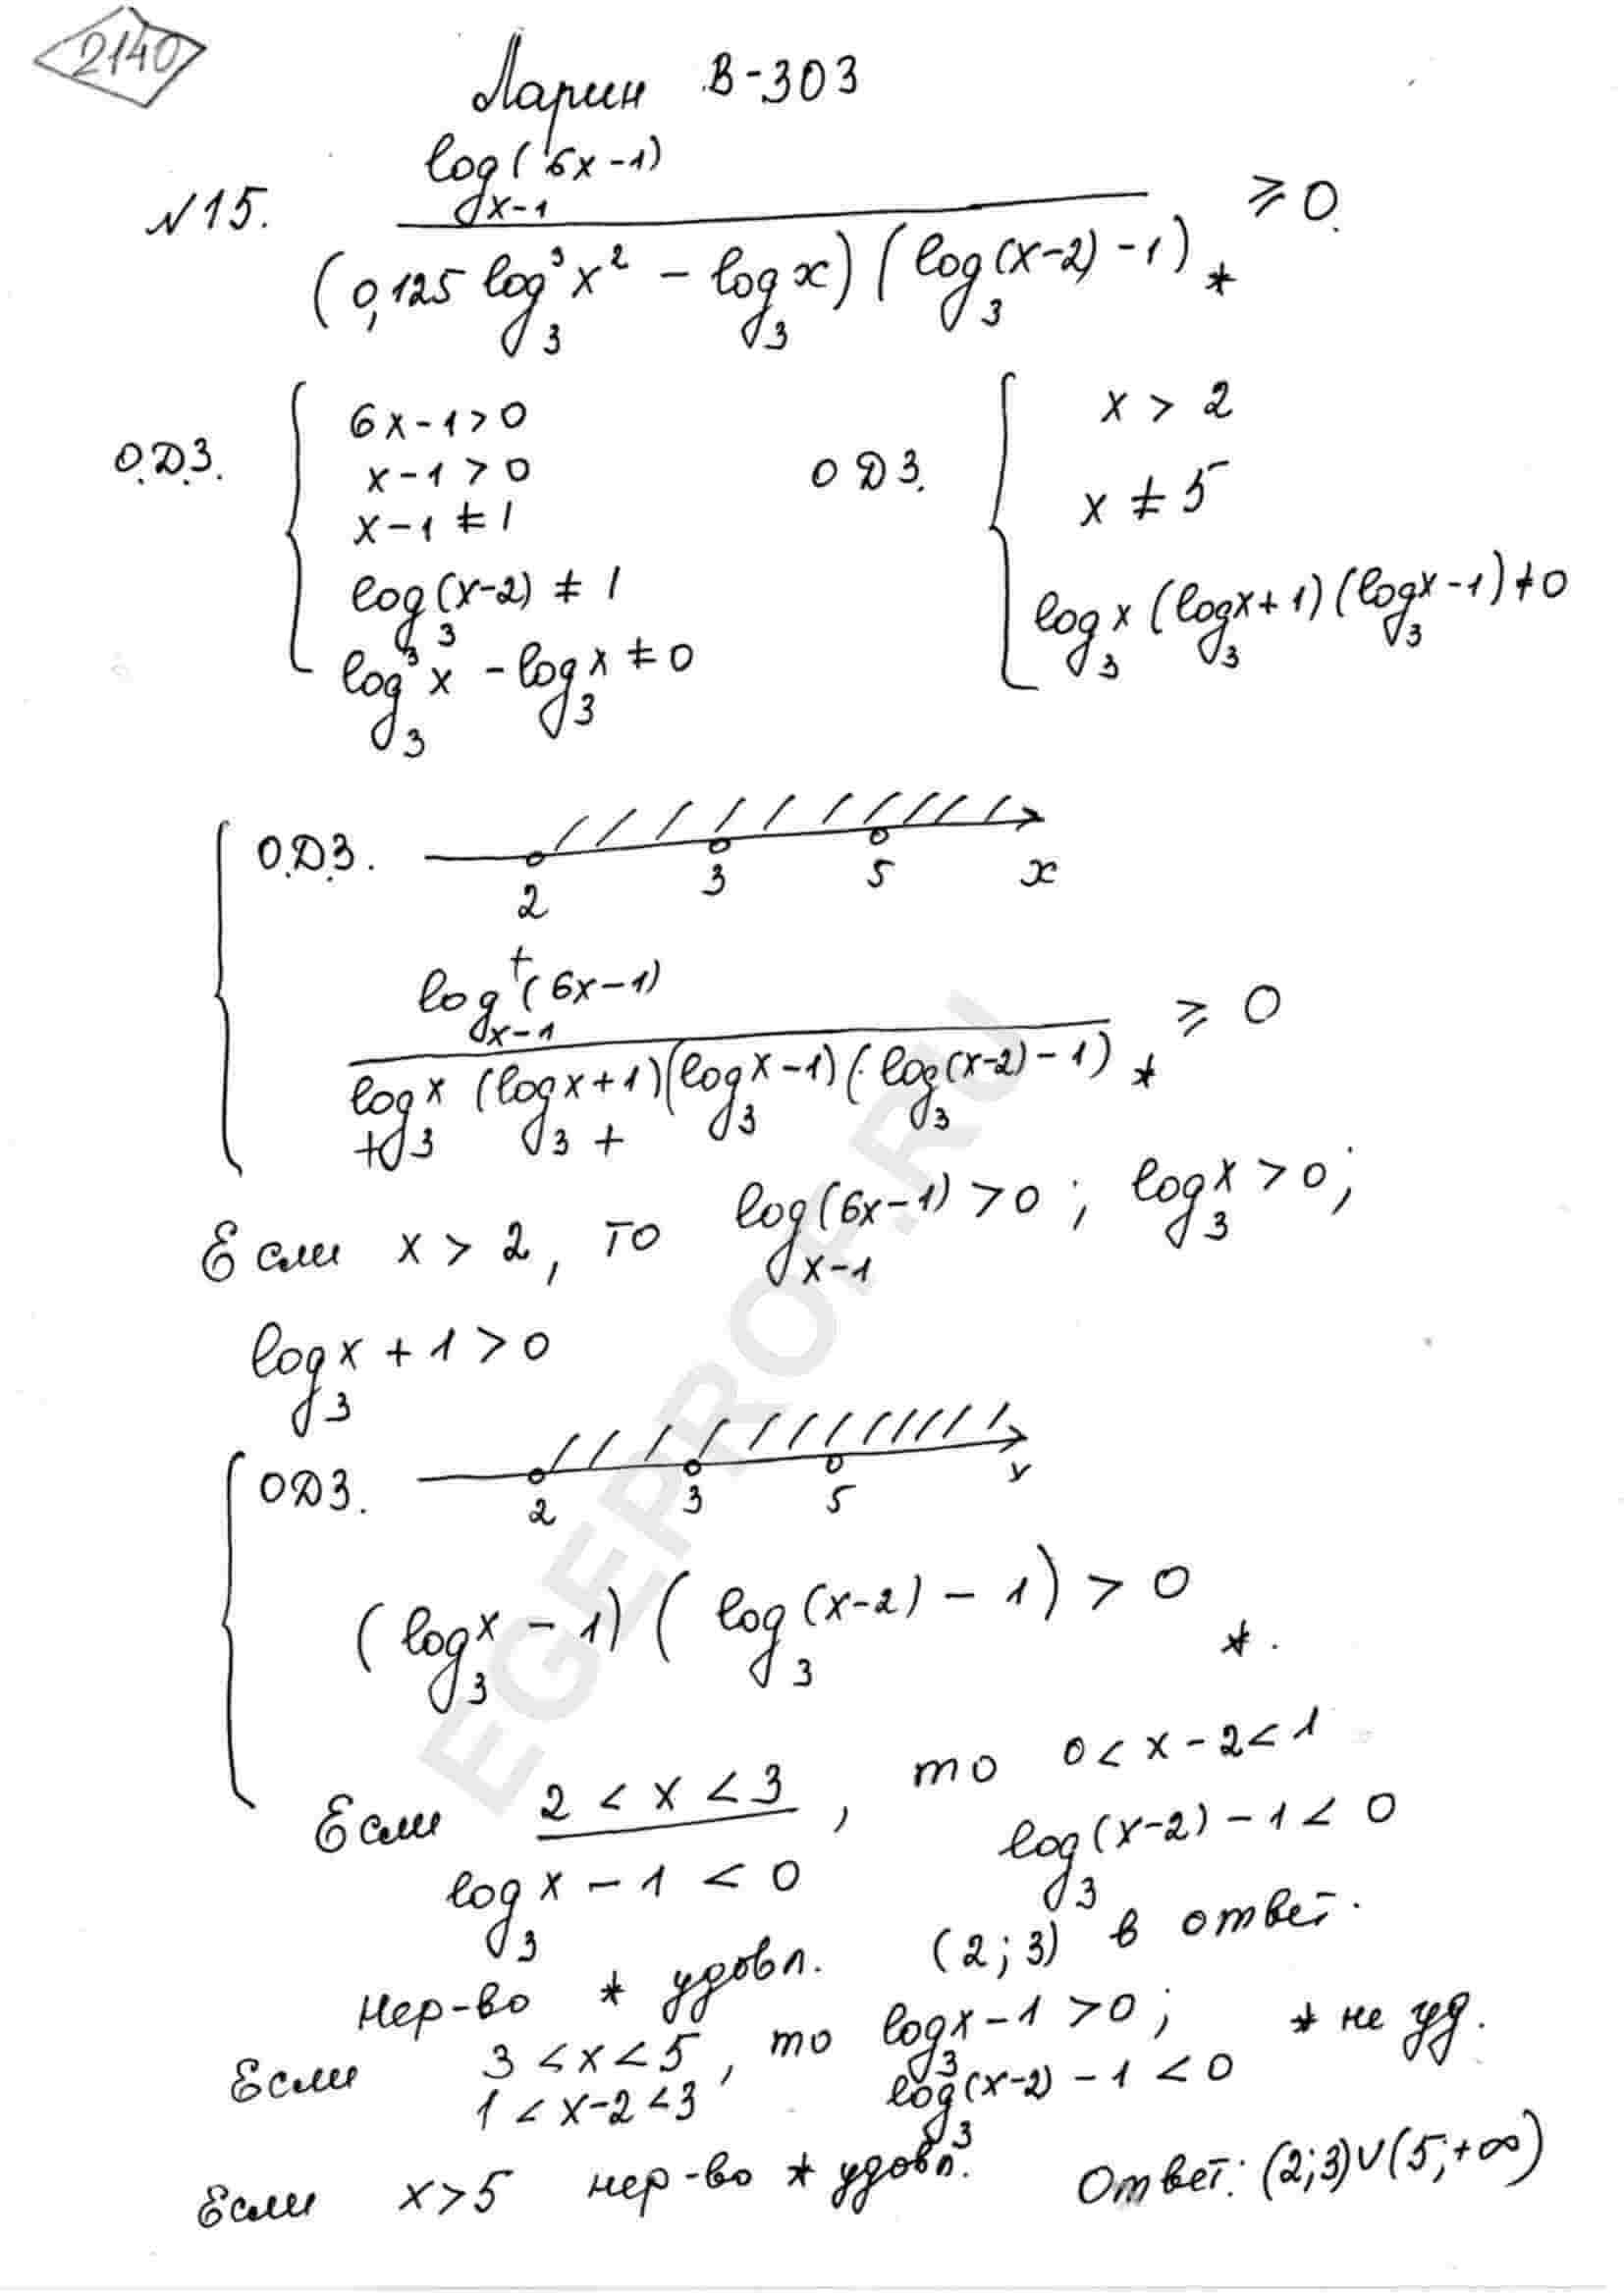 2140
Ларин В-303
№15. log_{x-1}(6x-1) / ((0,125 log_3^3 x^2 - log_3 x)(log_3(x-2) - 1)) * ≥ 0.
О.Д.З. { 6x-1>0
x-1>0
x-1≠1
log_3(x-2) ≠ 1
log_3^3 x - log_3 x ≠ 0
ОДЗ. { x > 2
x ≠ 5
log_3 x (log_3 x+1)(log_3 x-1) ≠ 0
О.Д.З. 2 3 5 x
+
log_{x-1}(6x-1) / (log_3 x (log_3 x+1)(log_3 x-1)(log_3(x-2)-1)) * ≥ 0
+ +
Если x > 2, то log_{x-1}(6x-1) > 0; log_3 x > 0;
log_3 x + 1 > 0
ОДЗ. 2 3 5 x
(log_3 x - 1)(log_3(x-2) - 1) > 0 *.
Если 2 < x < 3, то 0 < x-2 < 1
log_3 x - 1 < 0 log_3(x-2) - 1 < 0
нер-во * удовл. (2;3) в ответ.
Если 3 < x < 5, то log_3 x - 1 > 0; * не уд.
1 < x-2 < 3 log_3(x-2) - 1 < 0
Если x>5 нер-во * удовл. Ответ: (2;3)∪(5;+∞)
EGEPROF.RU